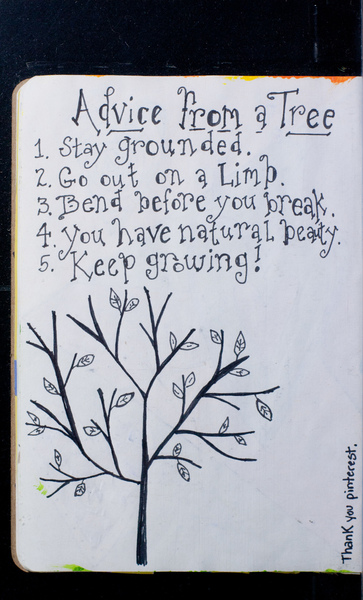 Advice from a Tree
1. Stay grounded.
2. Go out on a Limb.
3. Bend before you break.
4. You have natural beaty.
5. Keep growing!
Thank you pinterest.